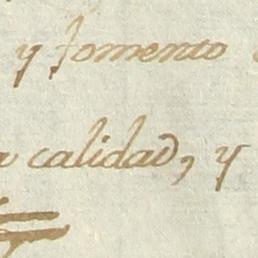 y fomento
calidad, y